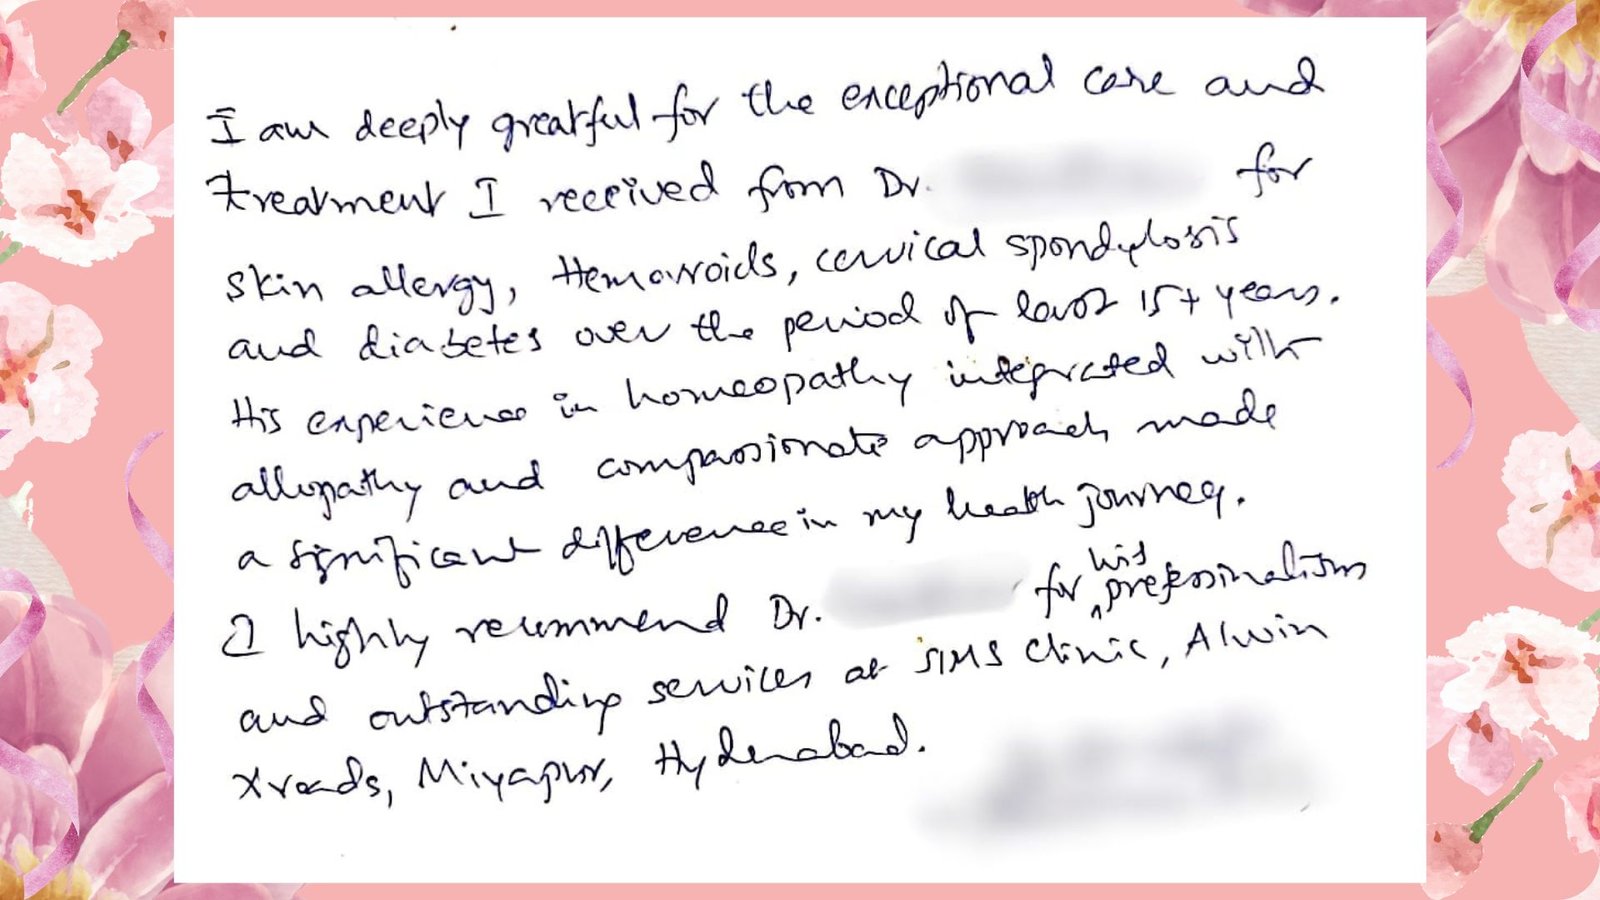 I am deeply greatful for the exceptional care and
treatment I received from Dr. for
skin allergy, Hemorroids, cervical spondylosis
and diabetes over the period of last 15+ years.
His experience in homeopathy integrated with
allopathy and compassionate approach made
a significant difference in my health journey.
I highly recommend Dr. for his professionalism
and outstanding services at SIMS Clinic, Alwin
Xroads, Miyapur, Hyderabad.